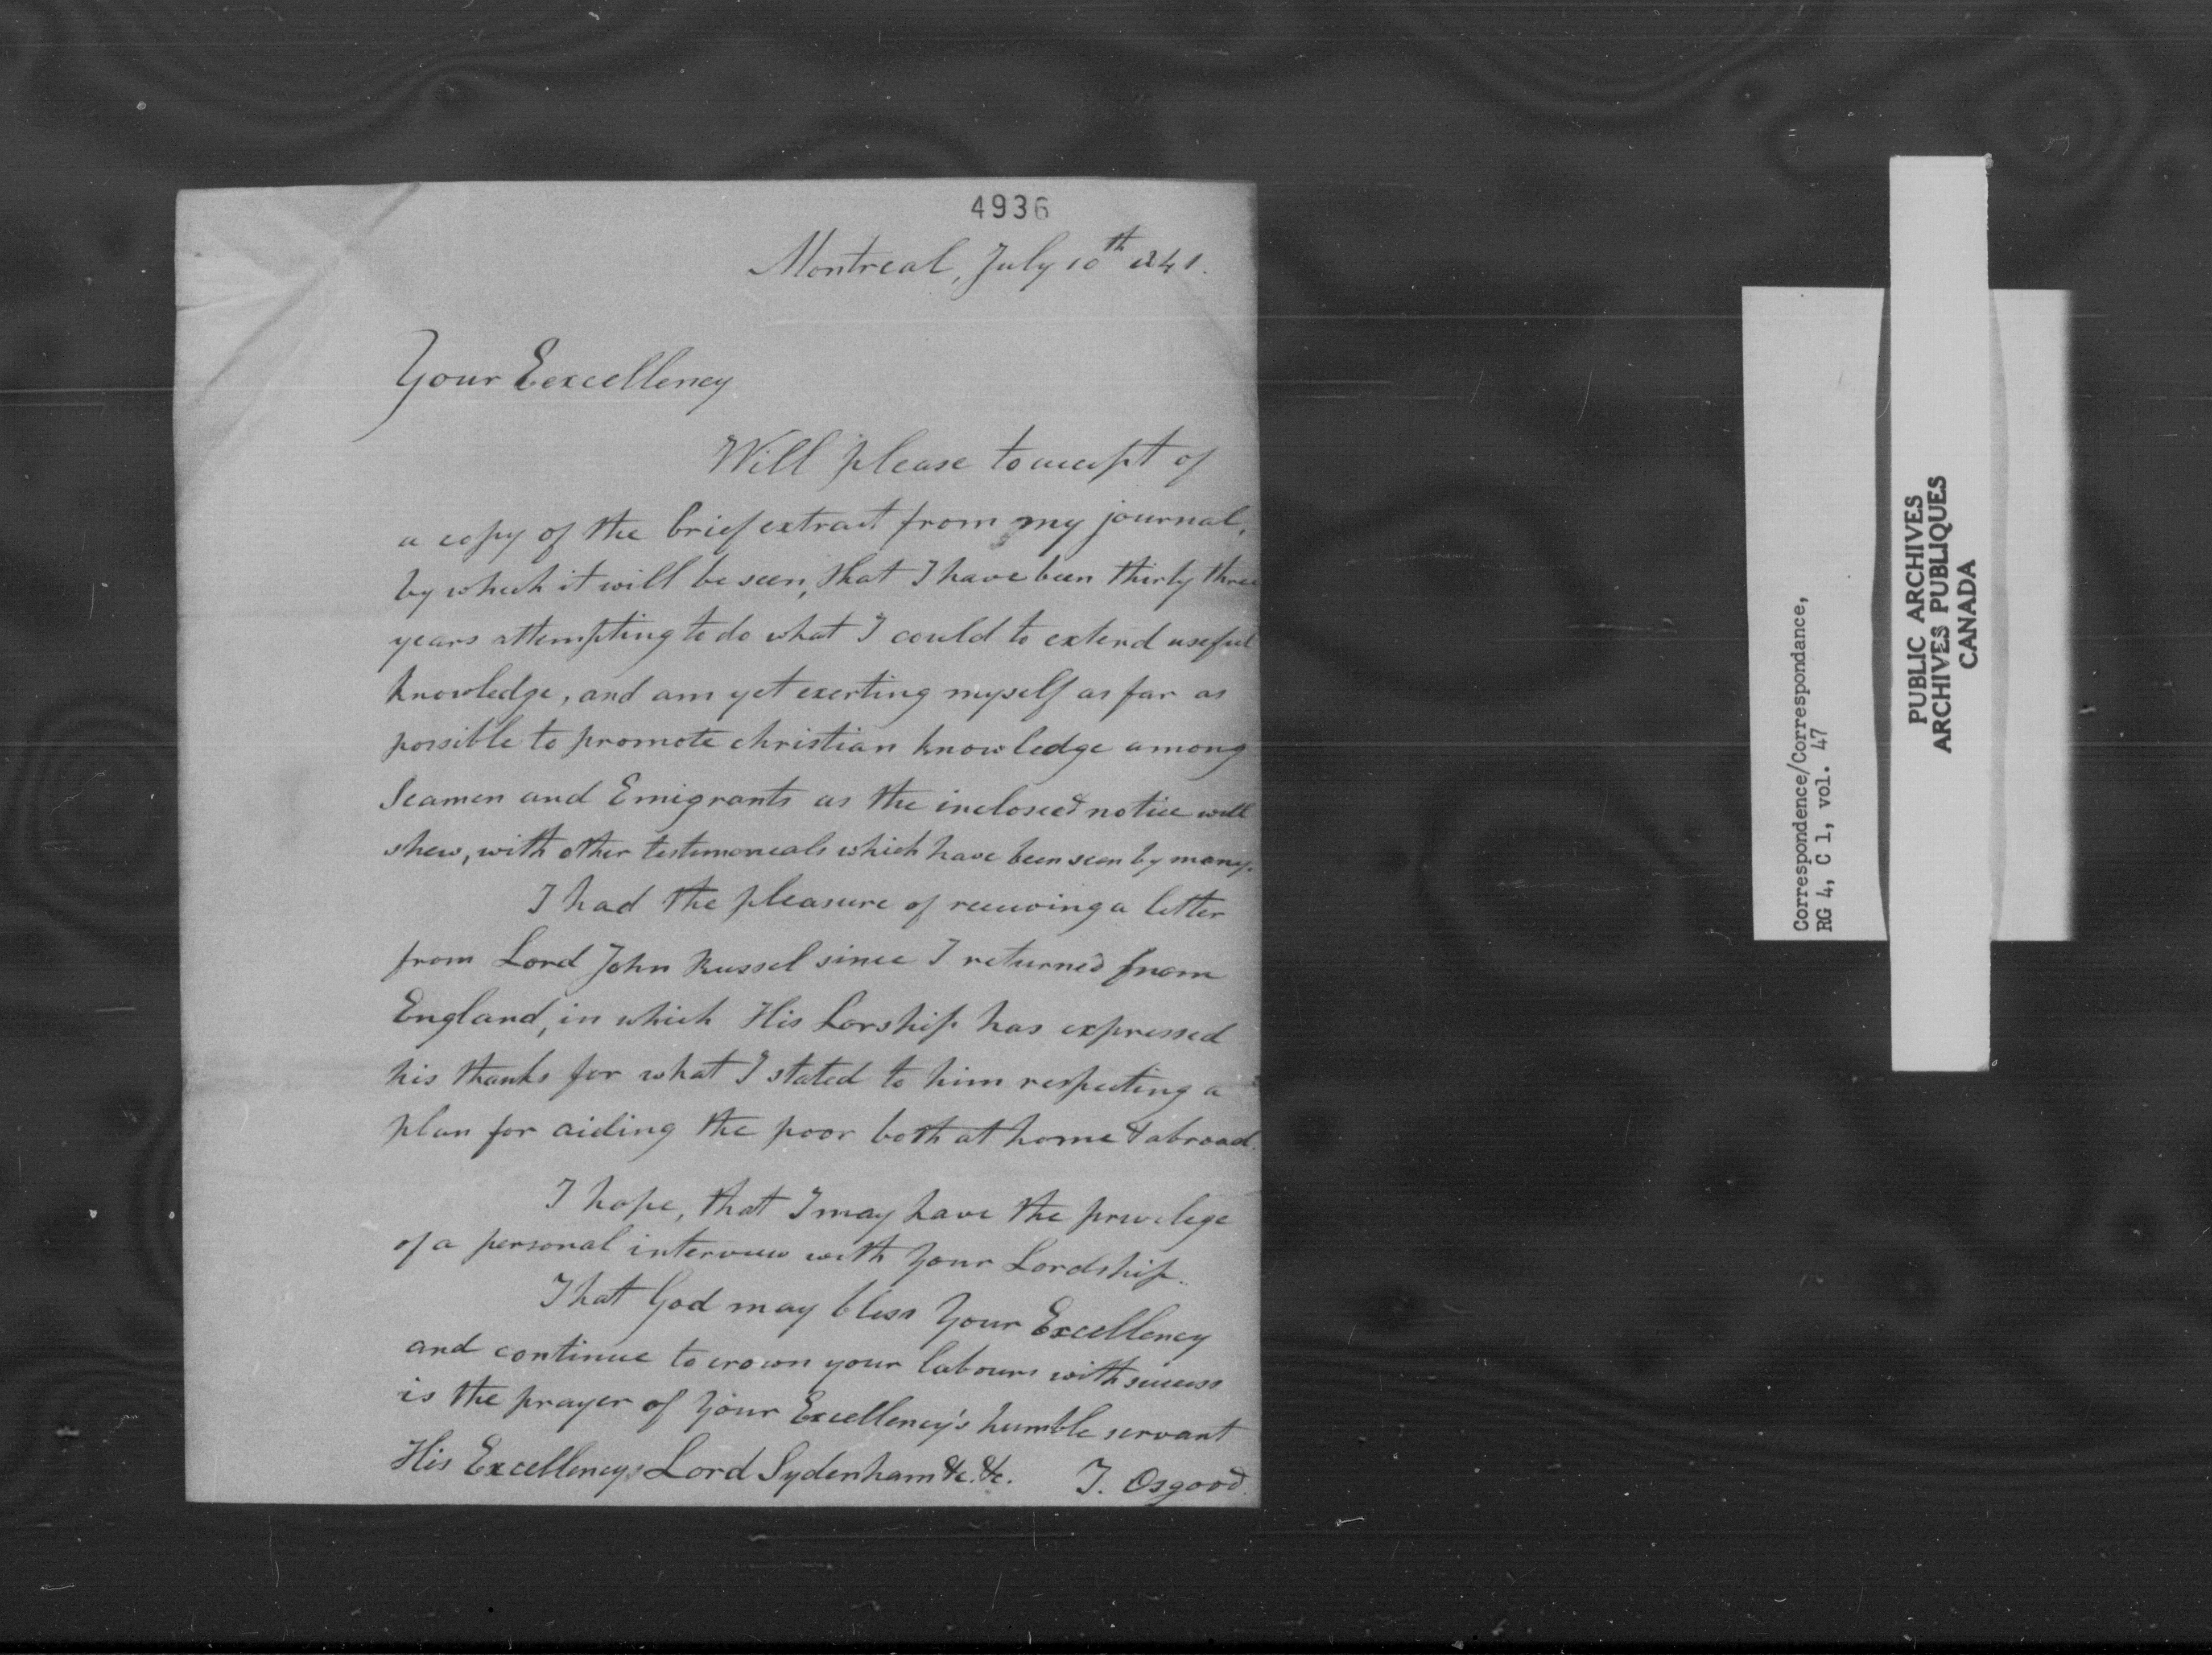 4936
Montreal, July 10th 1841.
Your Eexcellency
Will please to accept of
a copy of the brief extract from my journal,
by which it will be seen, that I have been thirty three
years attempting to do what I could to extend useful
knowledge, and am yet exerting myself as far as
possible to promote christian knowledge among
Seamen and Emigrants as the inclosed notice will
shew, with other testimoneals which have been seen by many.
I had the pleasure of receiving a letter
from Lord John Russel since I returned from
England, in which His Lorship has expressed
his thanks for what I stated to him respecting a
plan for aiding the poor both at home & abroad.
I hope, that I may have the privelege
of a personal interview with Your Lordship.
That God may bless Your Excellency
and continue to crown your labours with success
is the prayer of Your Excellency's humble servant
His Excellency, Lord Sydenham &c. &c. T. Osgood.
Correspondence/Correspondance,
RG 4, C 1, vol. 47
PUBLIC ARCHIVES
ARCHIVES PUBLIQUES
CANADA